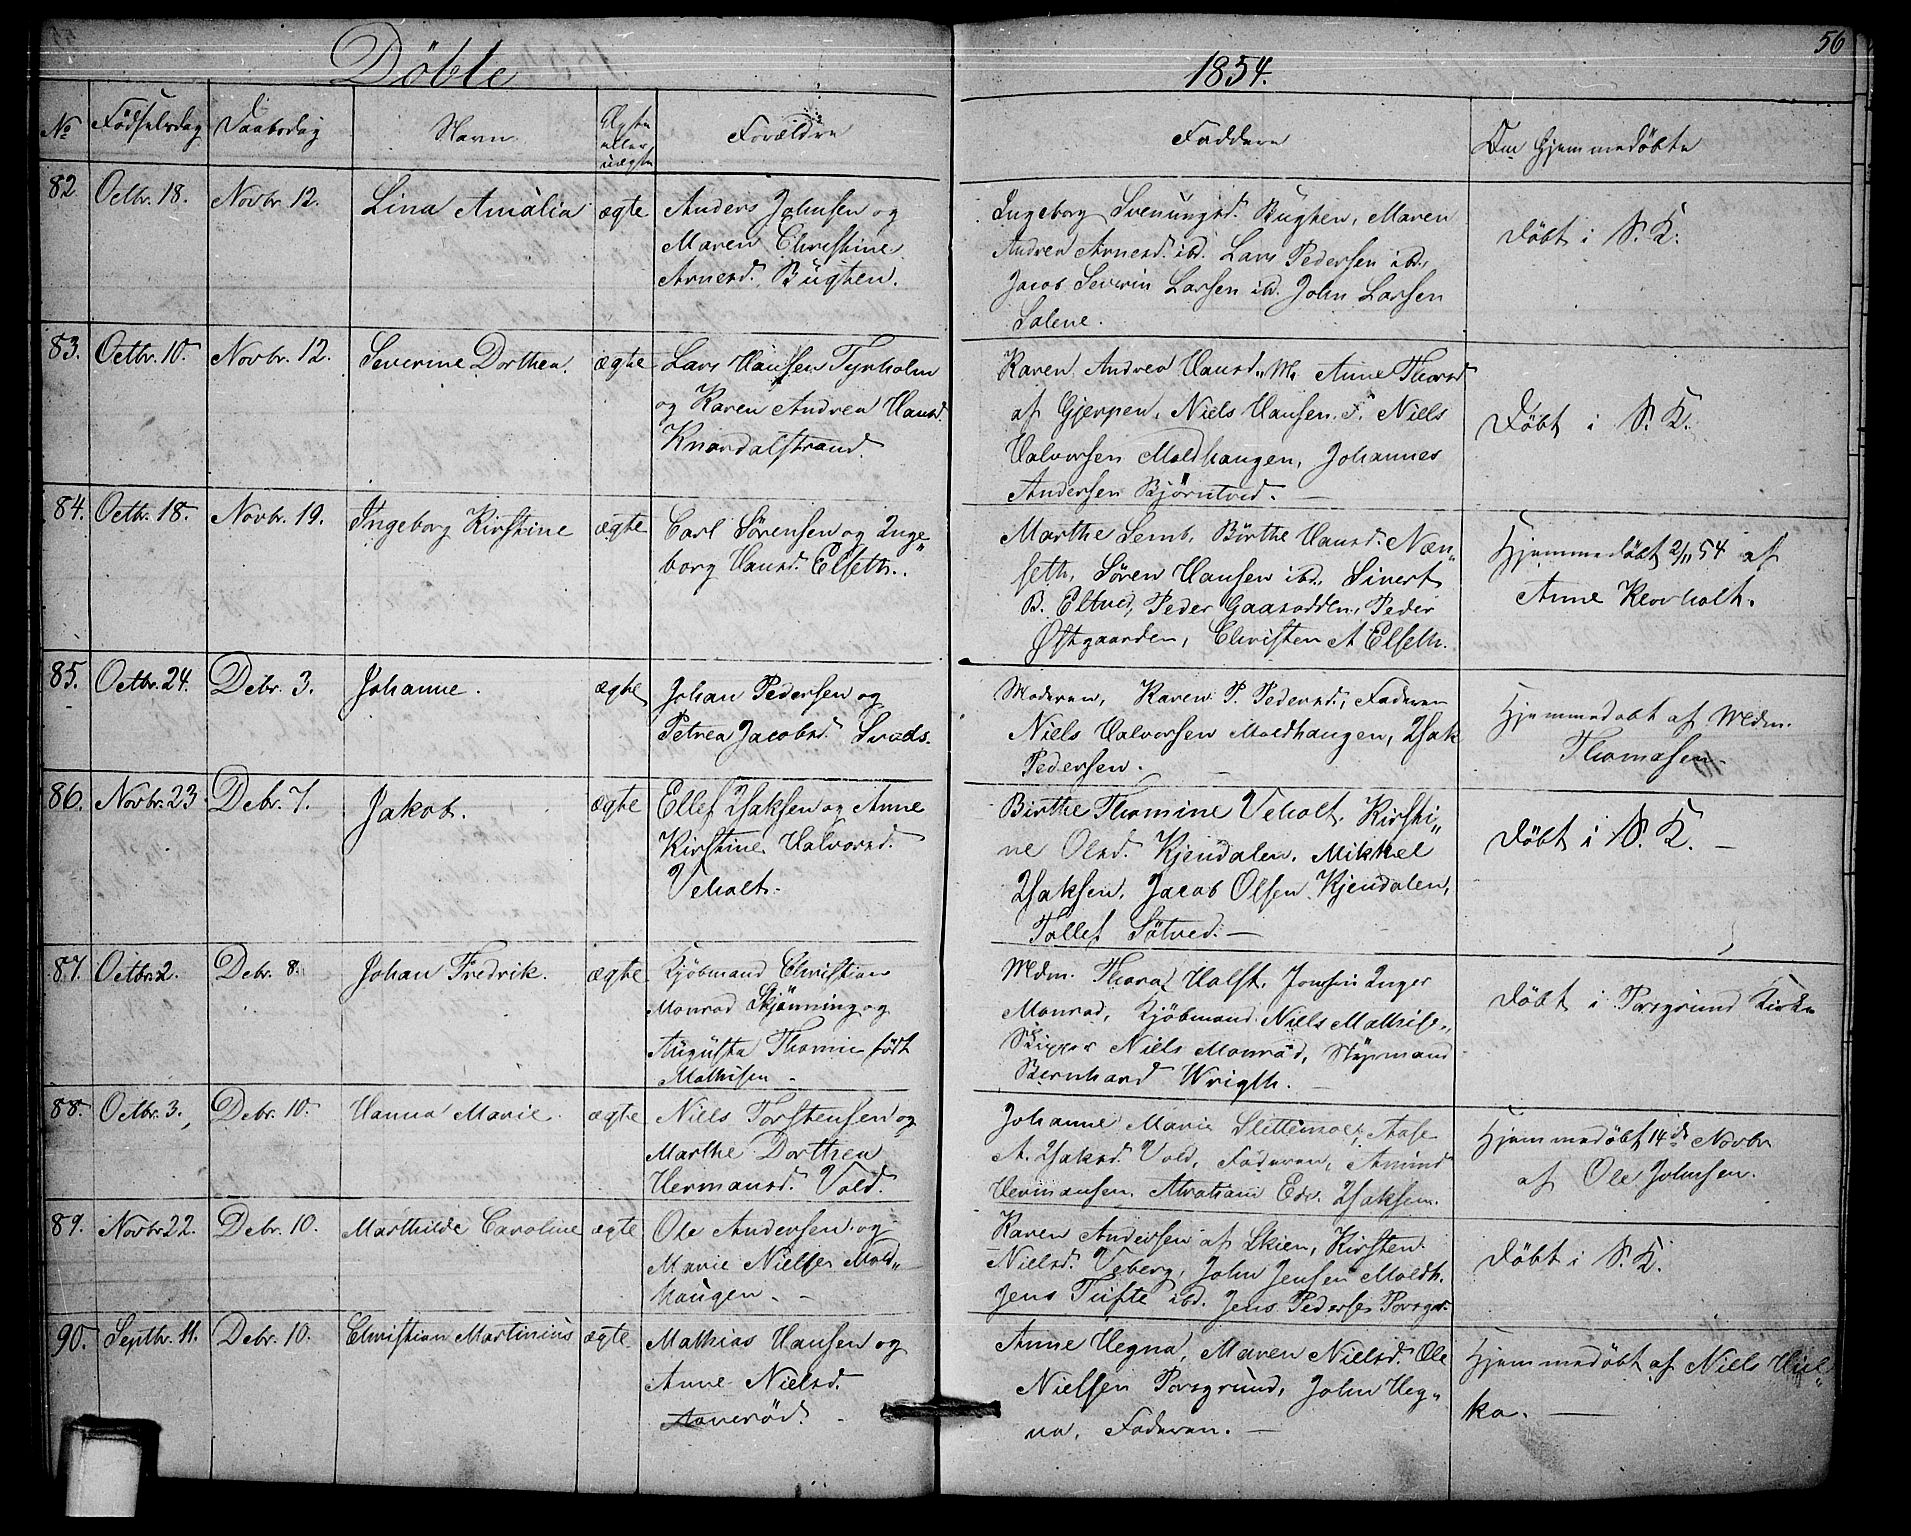 Döbte
1854.
56
No
Fødselsdag
Daabsdag
Navn
Ægte
eller
uægte
Forældre
Faddere
Om Hjemmedöbte
82. Octbr. 18. Novbr. 12. Lina Amalia ægte
Anders Johnsen og
Maren Christine
Arnesd. Bugten.
Ingeborg Svenungsd. Bugten, Maren
Andrea Arnesd. ibd. Lars Pedersen ibd.,
Jacob Severin Larsen ibd. John Larsen
Salene.
Døbt i S. K.
83. Octbr. 10. Novbr. 12. Severine Dorthea. ægte
Lars Hansen Tyrholm
og Karen Andrea Hansd.
Knardalstrand.
Karen Andrea Hansd. M. Anne Thorsd
af Gjerpen, Niels Hansen. F. Niels
Halvorsen Moldhaugen, Johannes
Andersen Bjørntved. —
Døbt i S. K.
84. Octbr. 18. Novbr. 19. Ingeborg Kirstine ægte
Carl Sørensen og Inge„
borg Hansd. Elseth.
Marthe Semb, Birthe Hansd. Næn„
seth, Sören Hansen ibd. Sivert
B. Eltved, Peder Gaasodden, Peder
Østgaarden, Christen A Elseth.
Hjemmedøbt 2/11 54 af
Anne Klovholt.
85. Octbr. 24. Debr. 3. Johanne. ægte
Johan Pedersen og
Petrea Jacobsd.
Moderen, Karen P. Pedersd., Faderen
Niels Halvorsen Moldhaugen, Isak
Pedersen. —
Hjemmedøbt af Mdm.
Thomasen.
86. Novbr. 23 Debr. 7. Jakob. ægte
Ellef Isaksen og Anne
Kirstine Halvorsd.
Veholt.
Birthe Thomine Veholt, Kirsti„
ne Olsd. Kjendalen, Mikkel
Isaksen, Jacob Olsen Kjendalen,
Tollef Søtved. —
Døbt i S. K. —
87. Octbr. 2. Debr. 8. Johan Fredrik. ægte
Kjöbmand Christian
Monrad Skjönning og
Augusta Thomine født
Mathisen —
Mdm. Thora Halst. Inger
Monrad, Kjöbmand Niels Mathise„
Skipper Niels Monrad, Styrmand
Bernhard Wrigth. —
Døbt i Porsgrund Kirke
88. Octbr. 3. Debr. 10. Hanna Marie. ægte
Niels Torstensen og
Marthe Dorthea
Hermansd. Vold.
Johanne Marie Aase
A. Isaksd. Vold, Faderen, Amund
Hermansen, Abraham Isaksen.
Hjemmedøbt 14de Novbr
af Ole Johnsen.
89. Novbr 22. Debr. 10. Marthilde Caroline ægte
Ole Andersen og
Marie Nielsen Mold„
haugen. —
Karen Andersen af Skien, Kirsten
Nielsd. Veberg, John Jensen Moldh.
Jens Tufte ibd. Jens Pedersen Porsgr.
Døbt i S. K.
90. Septbr. 11. Debr. 10. Christian Martinius ægte
Mathias Hansen og
Anne Nielsd.
Aanerød. —
Anne Hegna, Maren Nielsd. Ole
Nielsen Porsgrund, John Heg„
na, Faderen. —
Hjemmedøbt af Niels Hiel„
ka. —